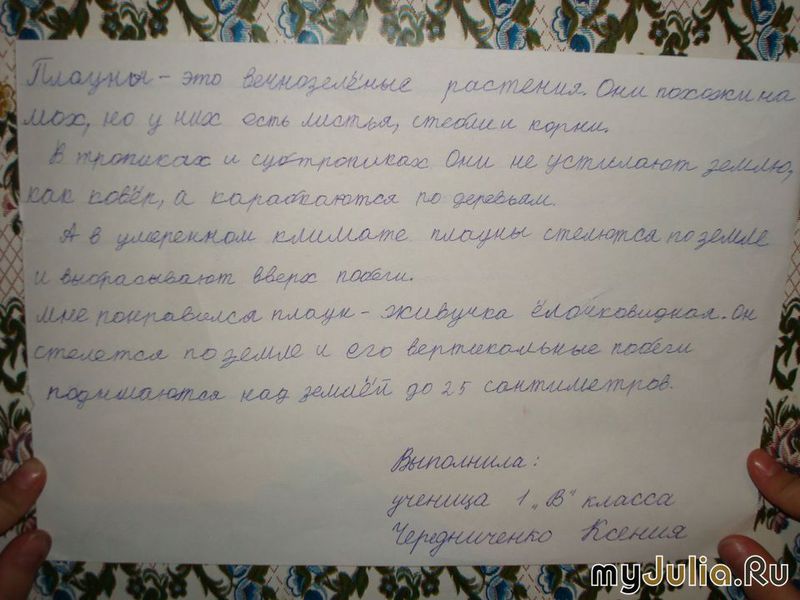 Плауны - это вечнозелёные растения. Они похожи на
мох, но у них есть листья, стебли и корни.
В тропиках и субтропиках Они не устилают землю,
как ковёр, а карабкаются по деревьям.
А в умеренном климате плауны стелются по земле
и выбрасывают вверх побеги.
мне понравился плаун - живучка ёлочковидная. Он
стелется по земле и его вертикальные побеги
поднимаются над землёй до 25 сантиметров.
Выполнила:
ученица 1 „В" класса
Чередниченко Ксения
myJulia.Ru